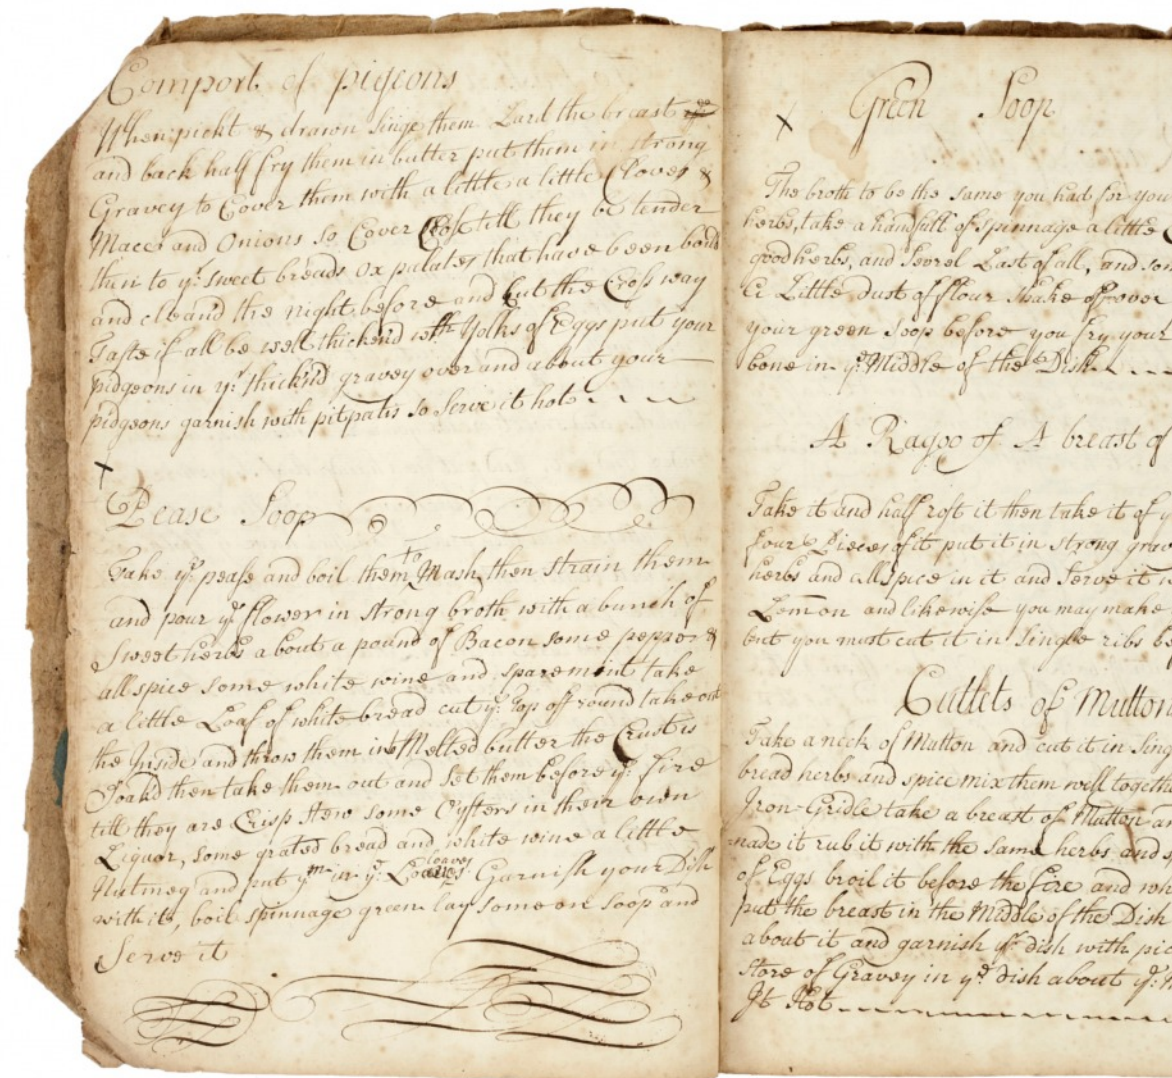 Comport of pigeons
When pickt & drawn singe them Lard the breast
and back half fry them in butter put them in strong
Gravey to Cover them with a little a little Cloves &
Mace and Onions so Cover Close till they be tender
then to ye sweet breads ox palates that have been boild
and cleand the night before and Cut the Cross way
Taste if all be well thickend wth Yolks of Eggs put your
pidgeons in ye thicknd gravey over and about your
pidgeons garnish with pitpatis so Serve it hot
Pease Soop
Take ye pease and boil them to Mash then strain them
and pour ye flower in strong broth with a bunch of
Sweet herbs about a pound of Bacon some pepper &
all spice some white wine and sparemint take
a little Loaf of white bread cut ye Top off round take out
the Inside and throw them into Melted butter the Crust is
Soakd then take them out and set them before ye fire
till they are Crisp stew some Oysters in their own
Liquor, some grated bread and white wine a little
Nutmeg and put ym in ye loaves Garnish your Dish
with it, boil spinnage green lay some on Soop and
Serve it
Green Soop
The broth to be the same you had for your
herbs, take a handfull of spinnage a little
good herbs, and Sevrel Last of all, and
a Little dust of flour shake over
your green Soop before you fry your
bone in ye Middle of the Dish
A Ragoo of A breast of
Take it and half rost it then take it of
four Pieces of it put it in strong
herbs and allspice in it and Serve it
Lemon and likewise you may make
but you must cut it in Single ribs
Cutlets of Mutton
Take a neck of Mutton and cut it in
bread herbs and spice mix them well
Iron Gridle take a breast of Mutton
made it rub it with the same herbs and
of Eggs broil it before the fire and
put the breast in the Middle of the Dish
about it and garnish ye dish with
store of Gravey in ye Dish about ye
It Hot